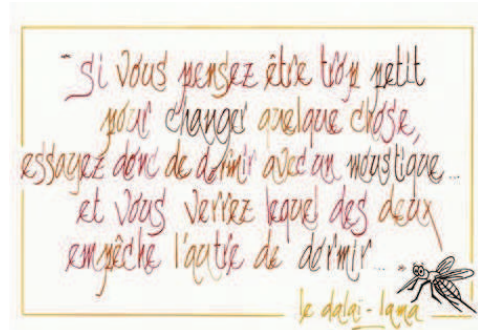 "Si vous pensez être trop petit
pour changer quelque chose,
essayez donc de dormir avec un moustique...
et vous verrez lequel des deux
empêche l'autre de dormir..."
le dalaï-lama